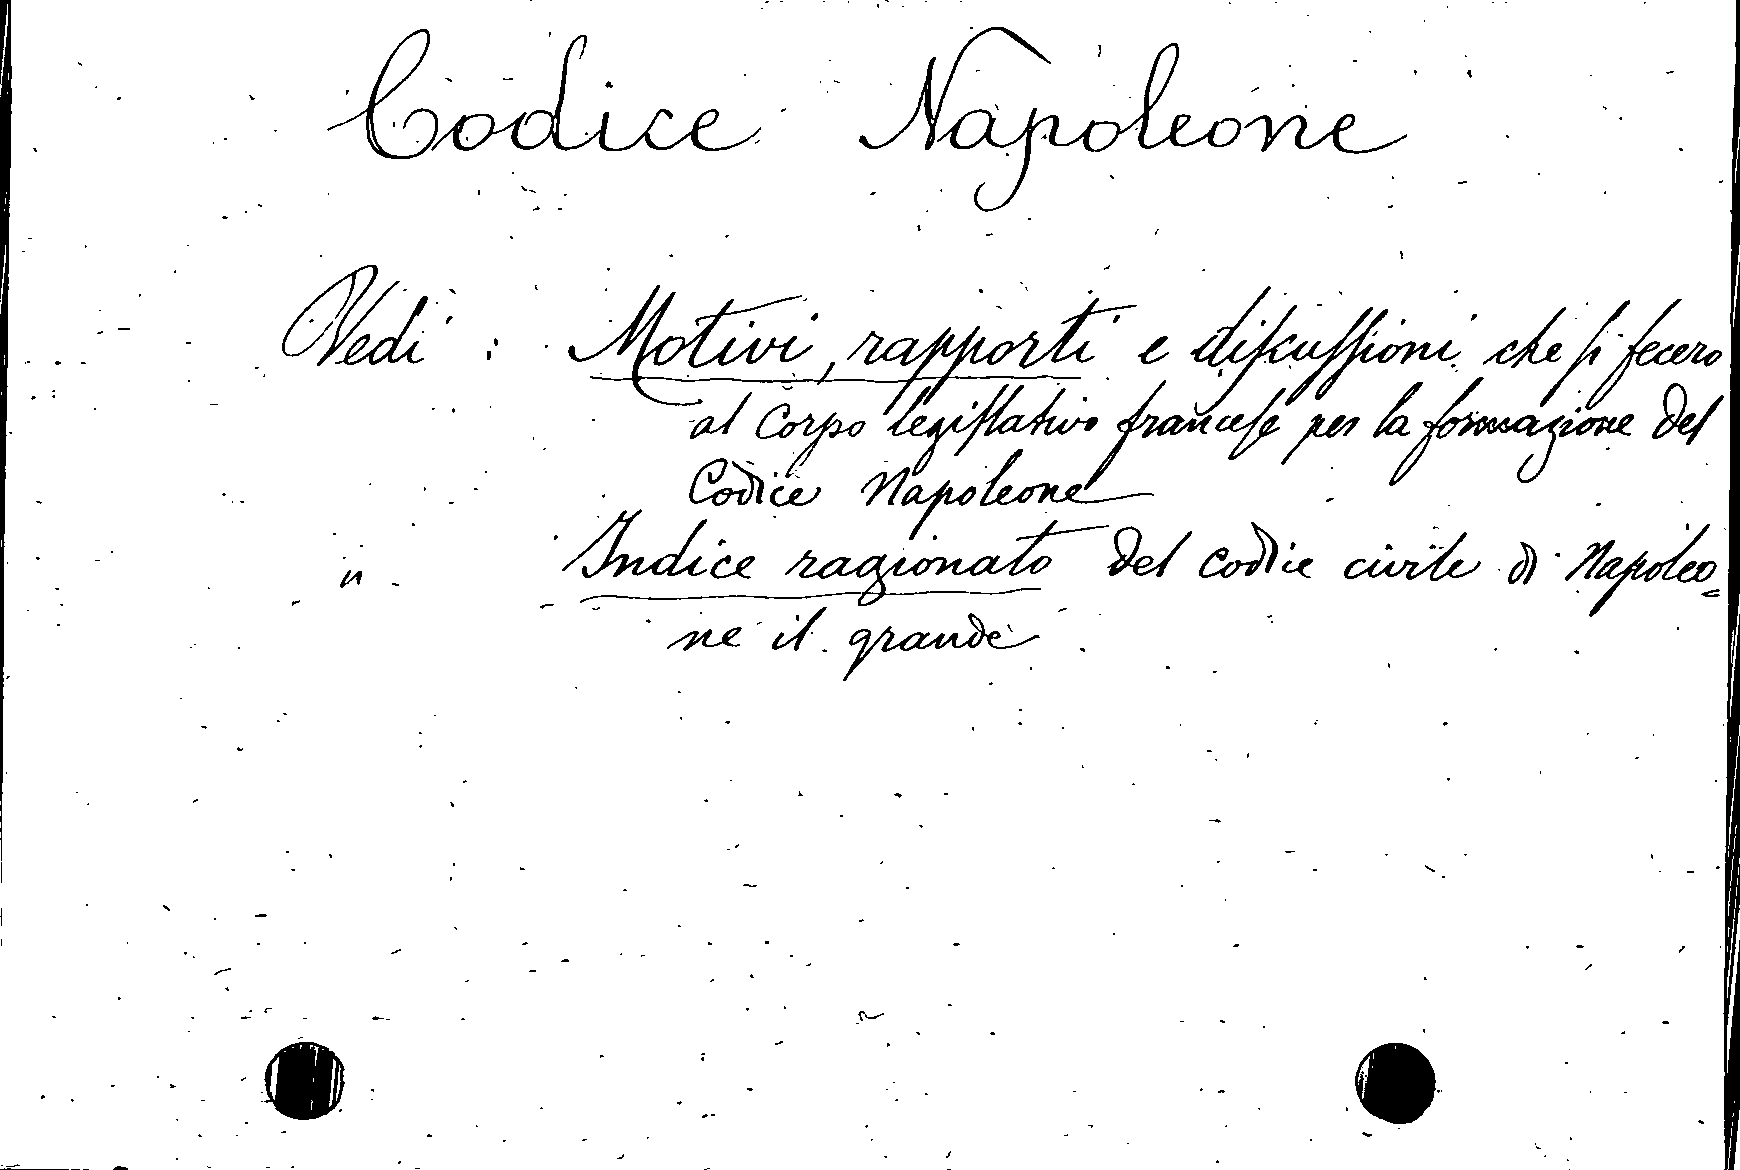 Codice Napoleone
Vedi : Motivi, rapporti e diſcuſſioni che ſi fecero
al Corpo legiſlativo franceſe per la formazione del
Codice Napoleone
" Indice ragionato del codice civile di Napoleo=
ne il grande